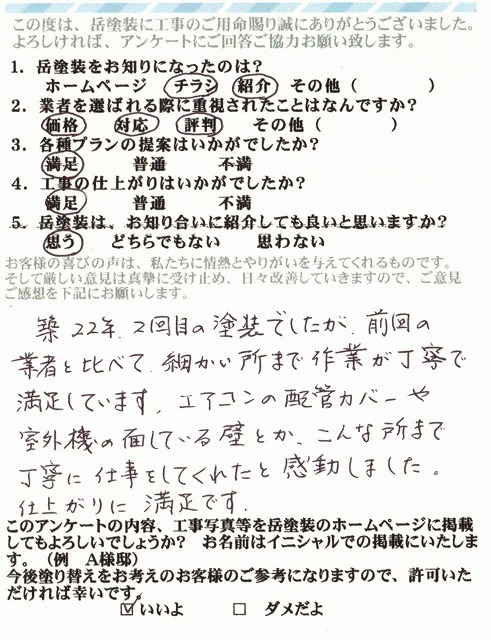 この度は、岳塗装に工事のご用命賜り誠にありがとうございました。
よろしければ、アンケートにご回答ご協力お願い致します。
1．岳塗装をお知りになったのは？
ホームページ　チラシ　紹介　その他（　　　　）
2．業者を選ばれる際に重視されたことはなんですか？
価格　対応　評判　その他（　　　　）
3．各種プランの提案はいかがでしたか？
満足　普通　不満
4．工事の仕上がりはいかがでしたか？
満足　普通　不満
5．岳塗装は、お知り合いに紹介しても良いと思いますか？
思う　どちらでもない　思わない
お客様の喜びの声は、私たちに情熱とやりがいを与えてくれるものです。
そして厳しい意見は真摯に受け止め、日々改善していきますので、ご意見
ご感想を下記にお願いします。
築22年、2回目の塗装でしたが、前回の
業者と比べて、細かい所まで作業が丁寧で
満足しています。エアコンの配管カバーや
室外機の面している壁とか、こんな所まで
丁寧に仕事をしてくれたと感動しました。
仕上がりに満足です。
このアンケートの内容、工事写真等を岳塗装のホームページに掲載
してもよろしいでしょうか？　お名前はイニシャルでの掲載にいたしま
す。（例　A様邸）
今後塗り替えをお考えのお客様のご参考になりますので、許可いた
だければ幸いです。
☑ いいよ　□ ダメだよ